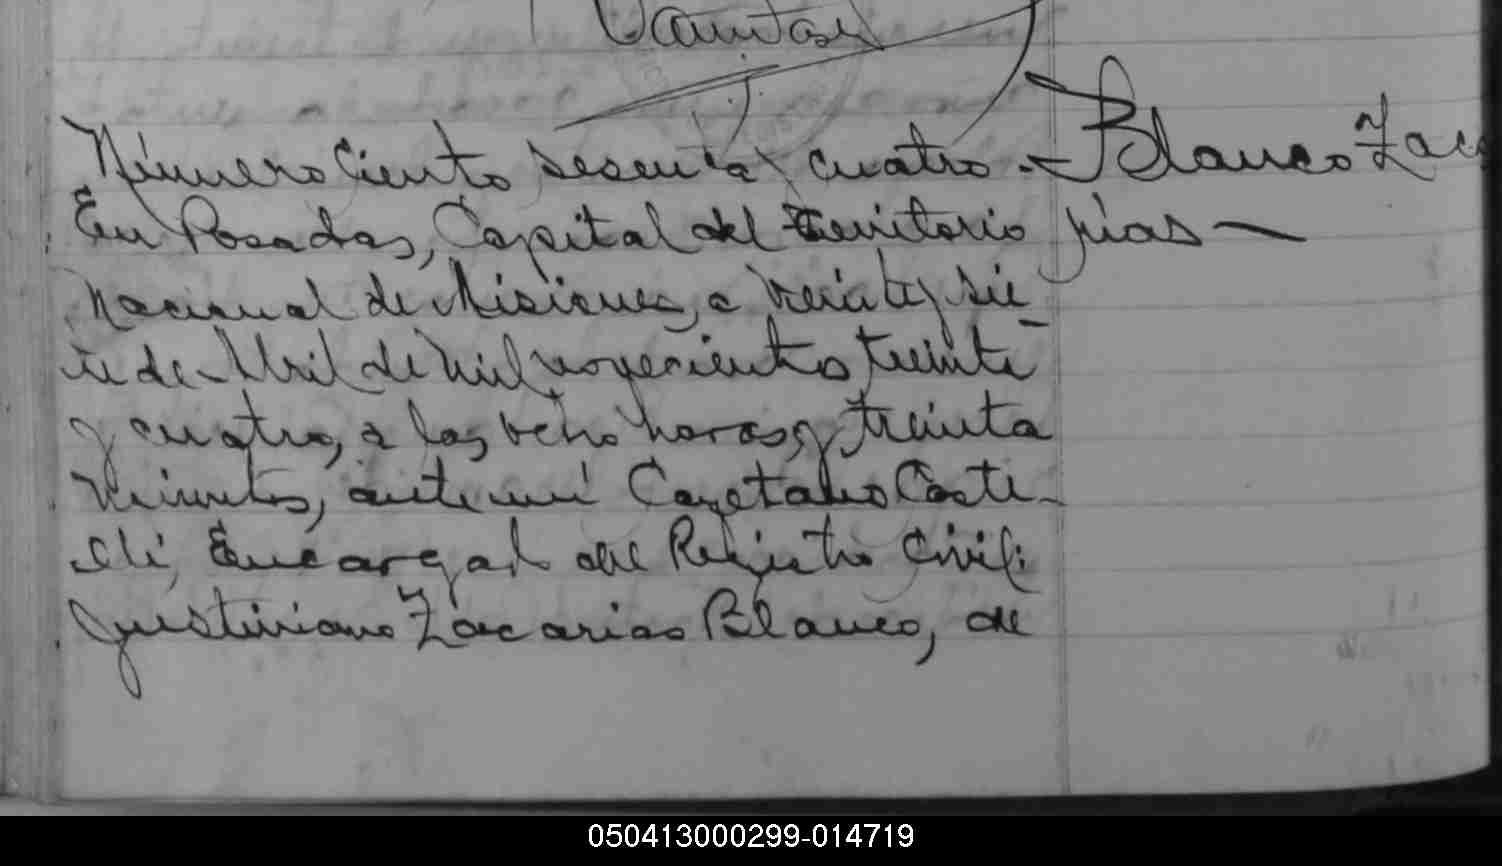 Número Ciento sesenta y cuatro.-
En Posadas, Capital del Territorio
Nacional de Misiones, a veinte y sie
te de Abril de mil novecientos treinta
y cuatro, a las ocho horas y treinta
minutos, ante mi Cayetano Caste-
lli, Encargado del Rejistro Civil:
Justiniano Zacarias Blanco, de
Blanco Zaca
rias
050413000299-014719